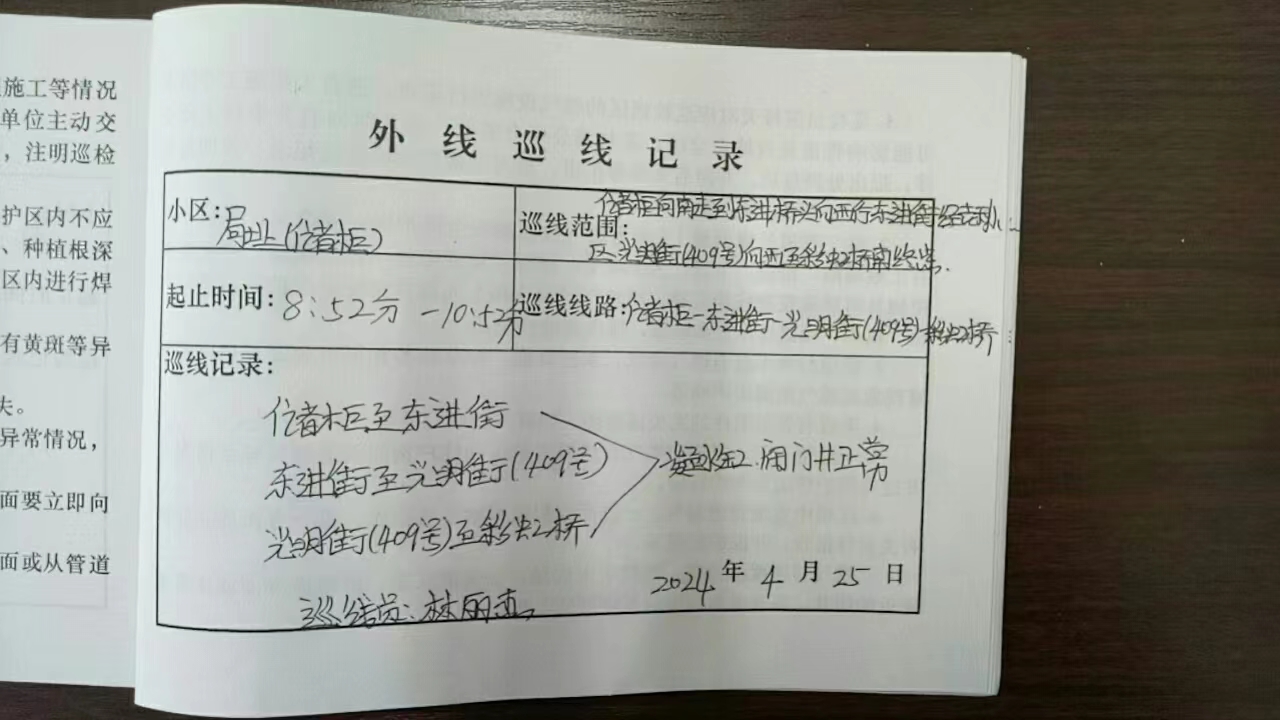 施工等情况
单位主动交
，注明巡检
护区内不应
、种植根深
区内进行焊
有黄斑等异
失。
异常情况，
面要立即向
面或从管道
外线巡线记录
小区：局址(储柜)
巡线范围：
柜向南走到东进桥头向西行东进街经
区光明街(409号)向西至彩虹桥南
起止时间：8:52分-10:52分
巡线线路：柜-东进街-光明街(409号)-彩虹桥
巡线记录：
柜至东进街
东进街至光明街(409号)
凝水缸.闸门井正常
光明街(409号)至彩虹桥
2024年4月25日
巡线员：林丽